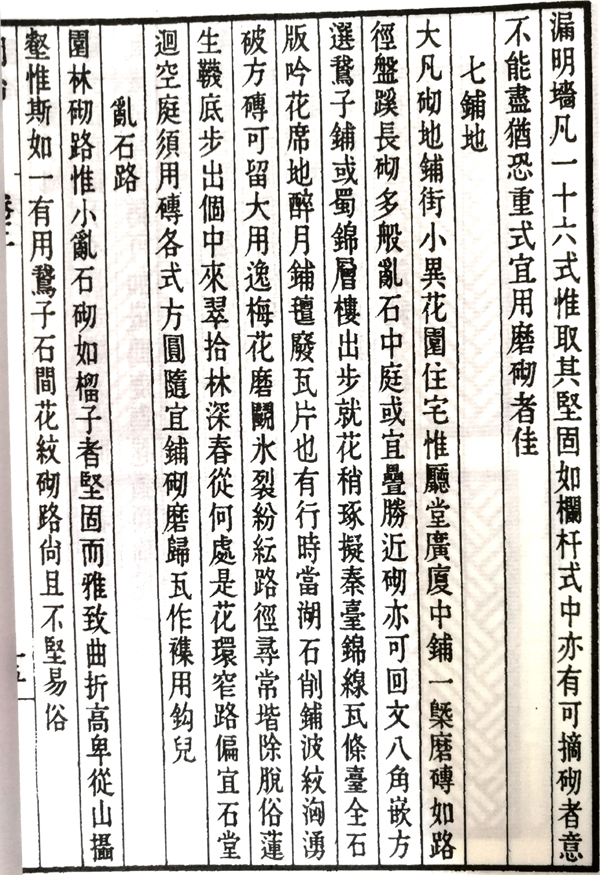 漏明墻凡一十六式惟取其堅固如欄杆式中亦有可摘砌者意
不能盡猶恐重式宜用磨砌者佳
七鋪地
大凡砌地鋪街小異花園住宅惟廳堂廣廈中鋪一槩磨磚如路
徑盤蹊長砌多般亂石中庭或宜疊勝近砌亦可回文八角嵌方
選鵞子鋪或蜀錦層樓出步就花稍琢擬秦臺錦線瓦條臺全石
版吟花席地醉月鋪氊廢瓦片也有行時當湖石削鋪波紋洶湧
破方磚可留大用逸梅花磨鬭氷裂紛紜路徑尋常堦除脫俗蓮
生韈底步出個中來翠拾林深春從何處是花環窄路偏宜石堂
迴空庭須用磚各式方圓隨宜鋪砌磨歸瓦作襍用鈎兒
亂石路
園林砌路惟小亂石砌如榴子者堅固而雅致曲折高卑從山攝
壑惟斯如一有用鵞子石間花紋砌路尙且不堅易俗